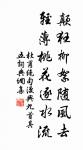 颠狂柳絮随风去
轻薄桃花逐水流
杜甫绝句漫兴九首其
五词典调集